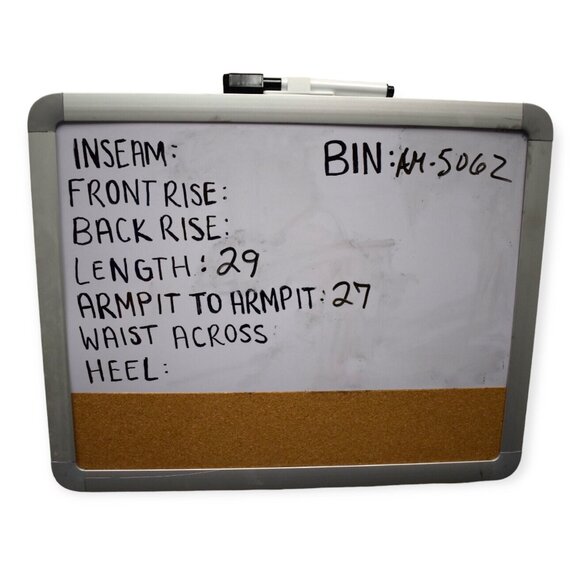 INSEAM:
BIN: AH-5062
FRONT RISE:
BACK RISE:
LENGTH: 29
ARMPIT TO ARMPIT: 27
WAIST ACROSS
HEEL: